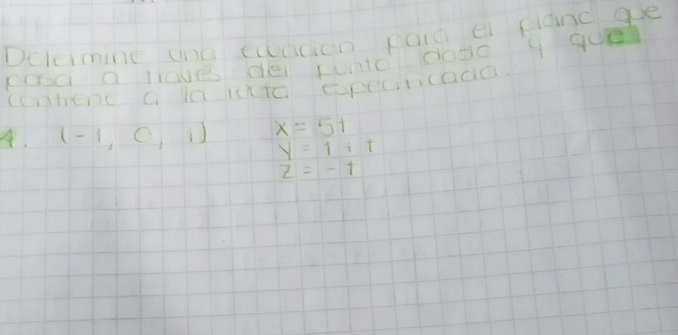 Determine una ecuación para el plano que
pasa a traves del punto dado y que
contiene a la recta especificada.
4. (-1, 0, 1) x = 5t
y = 1 + t
z = -t